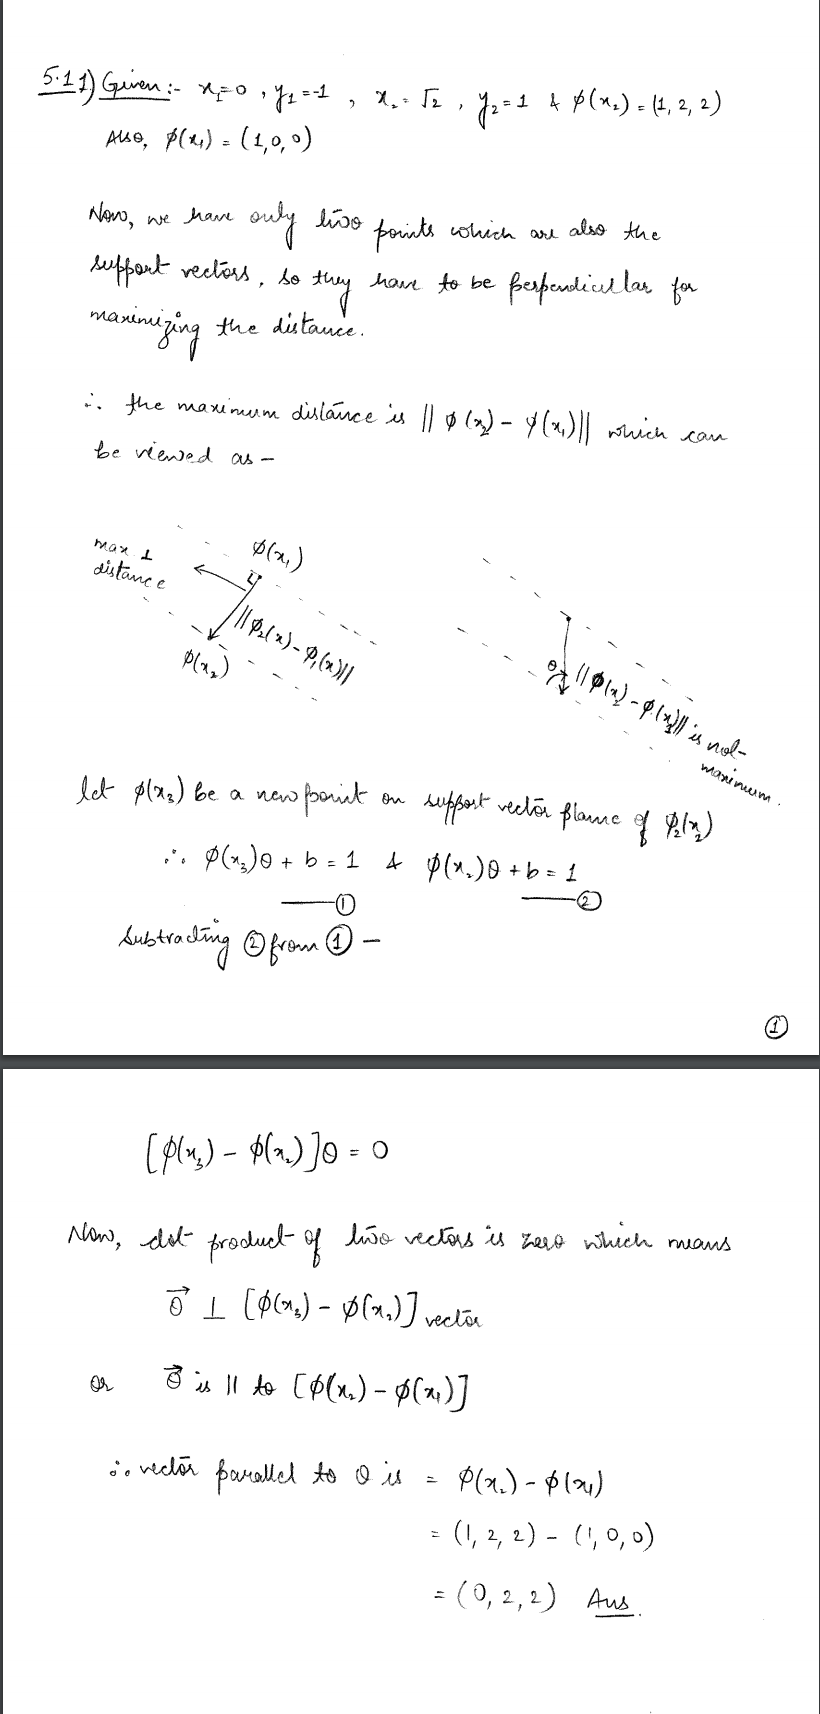 5.11) Given :- x₁=0 , y₁=-1 , x₂ = √2 , y₂=1 & φ(x₂) = (1, 2, 2)
Also, φ(x₁) = (1,0,0)
Now, we have only two points which are also the
support vectors, so they have to be perpendicular for
maximizing the distance.
∴ the maximum distance is || φ(x₂) - φ(x₁)|| which can
be viewed as -
max ⊥
distance
φ(x₁)
||φ₂(x) - φ₁(x)||
φ(x₂)
θ
||φ(x₂) - φ(x₁)|| is not
maximum.
let φ(x₃) be a new point on support vector plane of φ₂(x₂)
∴ φ(x₃)θ + b = 1 & φ(x₂)θ + b = 1
① ②
Subtracting ② from ① -
①
[φ(x₃) - φ(x₂)]θ = 0
Now, dot product of two vectors is zero which means
θ⃗ ⊥ [φ(x₃) - φ(x₂)] vector
or θ⃗ is || to [φ(x₂) - φ(x₁)]
∴ vector parallel to θ is = φ(x₂) - φ(x₁)
= (1, 2, 2) - (1, 0, 0)
= (0, 2, 2) Ans.